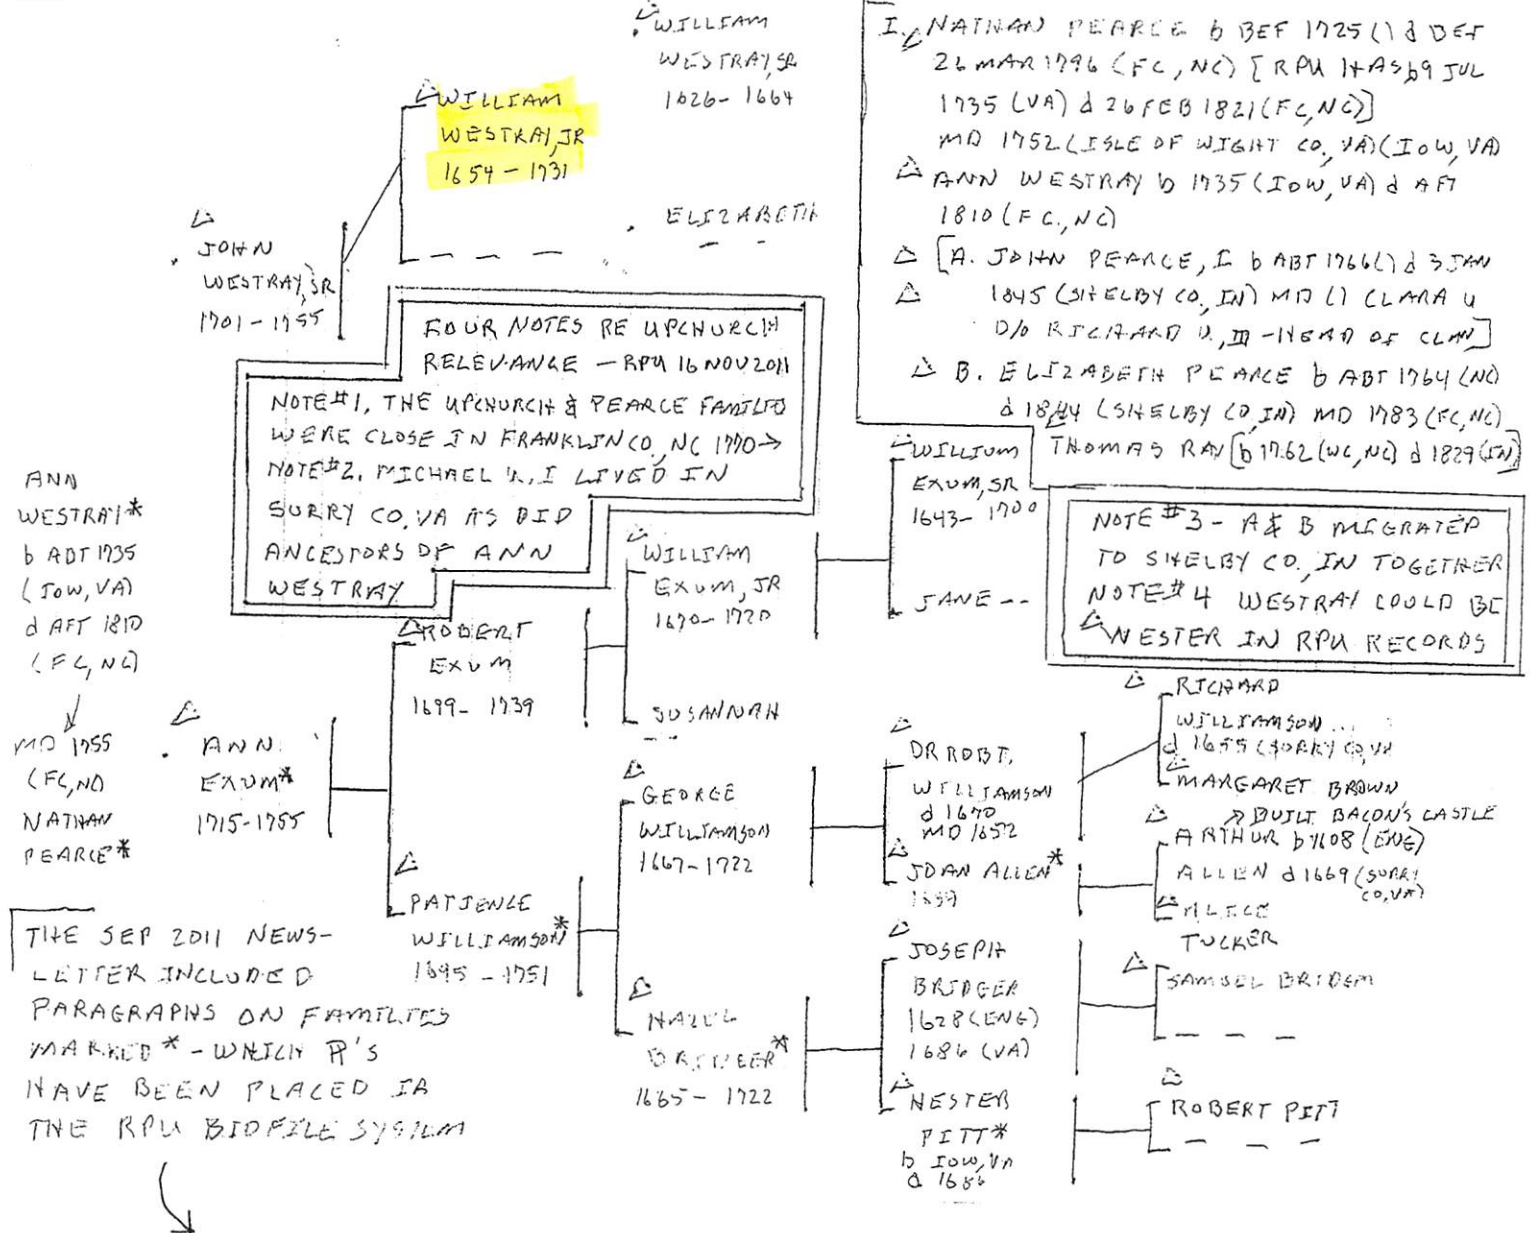 WILLIAM
WESTRAY, SR
1626 - 1664
WILLIAM
WESTRAY, JR
1654 - 1731
ELIZABETH
JOHN
WESTRAY, SR
1701 - 1755
I. NATHAN PEARCE b BEF 1725 () d BEF
26 MAR 1796 (FC, NC) [RPU HAS b 9 JUL
1735 (VA) d 26 FEB 1821 (FC, NC)]
MD 1752 (ISLE OF WIGHT CO., VA) (IOW, VA)
ANN WESTRAY b 1735 (IOW, VA) d AFT
1810 (FC., NC)
[A. JOHN PEARCE, I b ABT 1766 () d 3 JAN
1845 (SHELBY CO, IN) MD () CLARA U
D/O RICHARD U, III - HEAD OF CLAN]
B. ELIZABETH PEARCE b ABT 1764 (NC)
d 1844 (SHELBY CO, IN) MD 1783 (FC, NC)
THOMAS RAY [b 1762 (WC, NC) d 1829 (IN)]
FOUR NOTES RE UPCHURCH
RELEVANCE - RPU 16 NOV 2011
NOTE #1, THE UPCHURCH & PEARCE FAMILIES
WERE CLOSE IN FRANKLIN CO, NC 1770 →
NOTE #2. MICHAEL U, I LIVED IN
SURRY CO, VA AS DID
ANCESTORS OF ANN
WESTRAY
NOTE #3 - A & B MIGRATED
TO SHELBY CO., IN TOGETHER
NOTE #4 WESTRAY COULD BE
WESTER IN RPU RECORDS
ANN
WESTRAY*
b ABT 1735
(IOW, VA)
d AFT 1810
(FC, NC)
MD 1755
(FC, NC)
NATHAN
PEARCE*
ANN
EXUM*
1715-1755
ROBERT
EXUM
1699 - 1739
PATIENCE
WILLIAMSON*
1695 - 1751
WILLIAM
EXUM, JR
1670-1720
SUSANNAH
GEORGE
WILLIAMSON
1667-1722
1665 - 1722
WILLIUM
EXUM, SR
1643 - 1700
JANE --
DR ROBT.
WILLIAMSON
d 1670
MD 1652
JOAN ALLEN*
JOSEPH
BRIDGER
1628 (ENG)
1686 (VA)
HESTER
PITT*
b IOW, VA
RICHARD
WILLIAMSON
d 1655 (SURRY CO, VA
MARGARET BROWN
→ BUILT BACON'S CASTLE
ARTHUR b 1608 (ENG)
ALLEN d 1669 (SURRY
CO, VA)
ALICE
TUCKER
ROBERT PITT
THE SEP 2011 NEWS-
LETTER INCLUDED
PARAGRAPHS ON FAMILIES
MARKED * - WHICH P's
HAVE BEEN PLACED IN
THE RPU BIOFILE SYSTEM